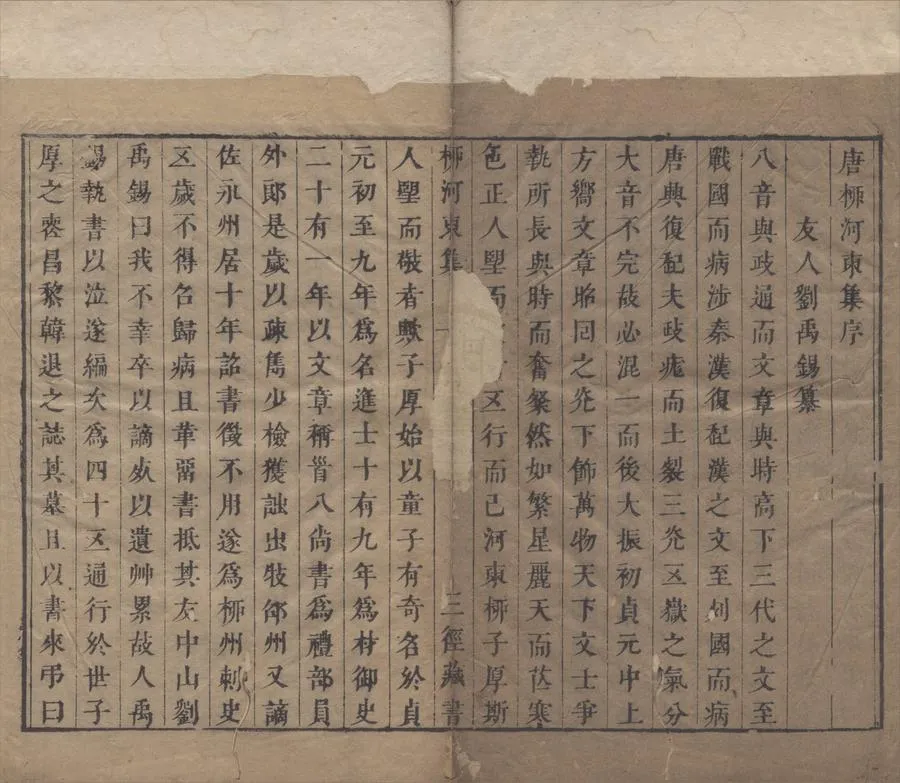 唐栁河東集序
友人劉禹錫纂
八音與政通而文章與時高下三代之文至
戰國而病涉秦漢復起漢之文至列國而病
唐興復起夫政厖而土裂三光五嶽之氣分
大音不完故必混一而後大振初貞元中上
方嚮文章昭回之光下飾萬物天下文士爭
執所長與時而奮粲然如繁星麗天而芒寒
色正人望而五行而已河東栁子厚斯
栁河東集 一 三徑藏書
人望而敬者歟子厚始以童子有奇名於貞
元初至九年為名進士十有九年為材御史
二十有一年以文章稱首入尚書為禮部員
外郎是歲以疎雋少檢獲訕出牧邵州又謫
佐永州居十年詔書徵不用遂為栁州刺史
五歲不得召歸病且革留書抵其友中山劉
禹錫曰我不幸卒以謫死以遺艸累故人禹
錫執書以泣遂編次為四十五通行於世子
厚之喪昌黎韓退之誌其墓且以書來弔曰